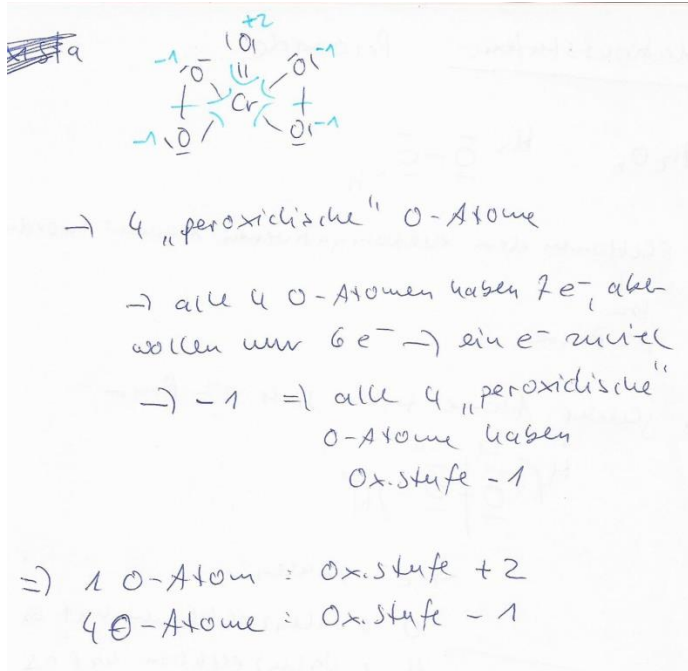 +2
-1 O O O -1
Cr
-1 O O -1
→ 4 „peroxidische" O-Atome
→ alle 4 O-Atomen haben 7e⁻, aber
wollen nur 6e⁻ → ein e⁻ zuviel
→ -1 ⇒ alle 4 „peroxidische"
O-Atome haben
Ox.stufe -1
⇒ 1 O-Atom : Ox.stufe +2
4 O-Atome : Ox.stufe -1